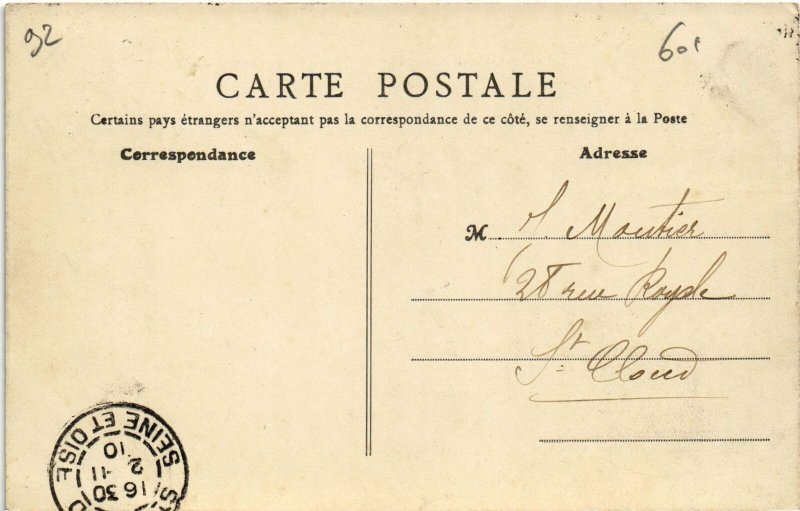 92
60f
CARTE POSTALE
Certains pays étrangers n'acceptant pas la correspondance de ce côté, se renseigner à la Poste
Correspondance
Adresse
M. J. Moutier
28 rue Royale
St Cloud
SEINE ET OISE
16 30
2 - 11
10